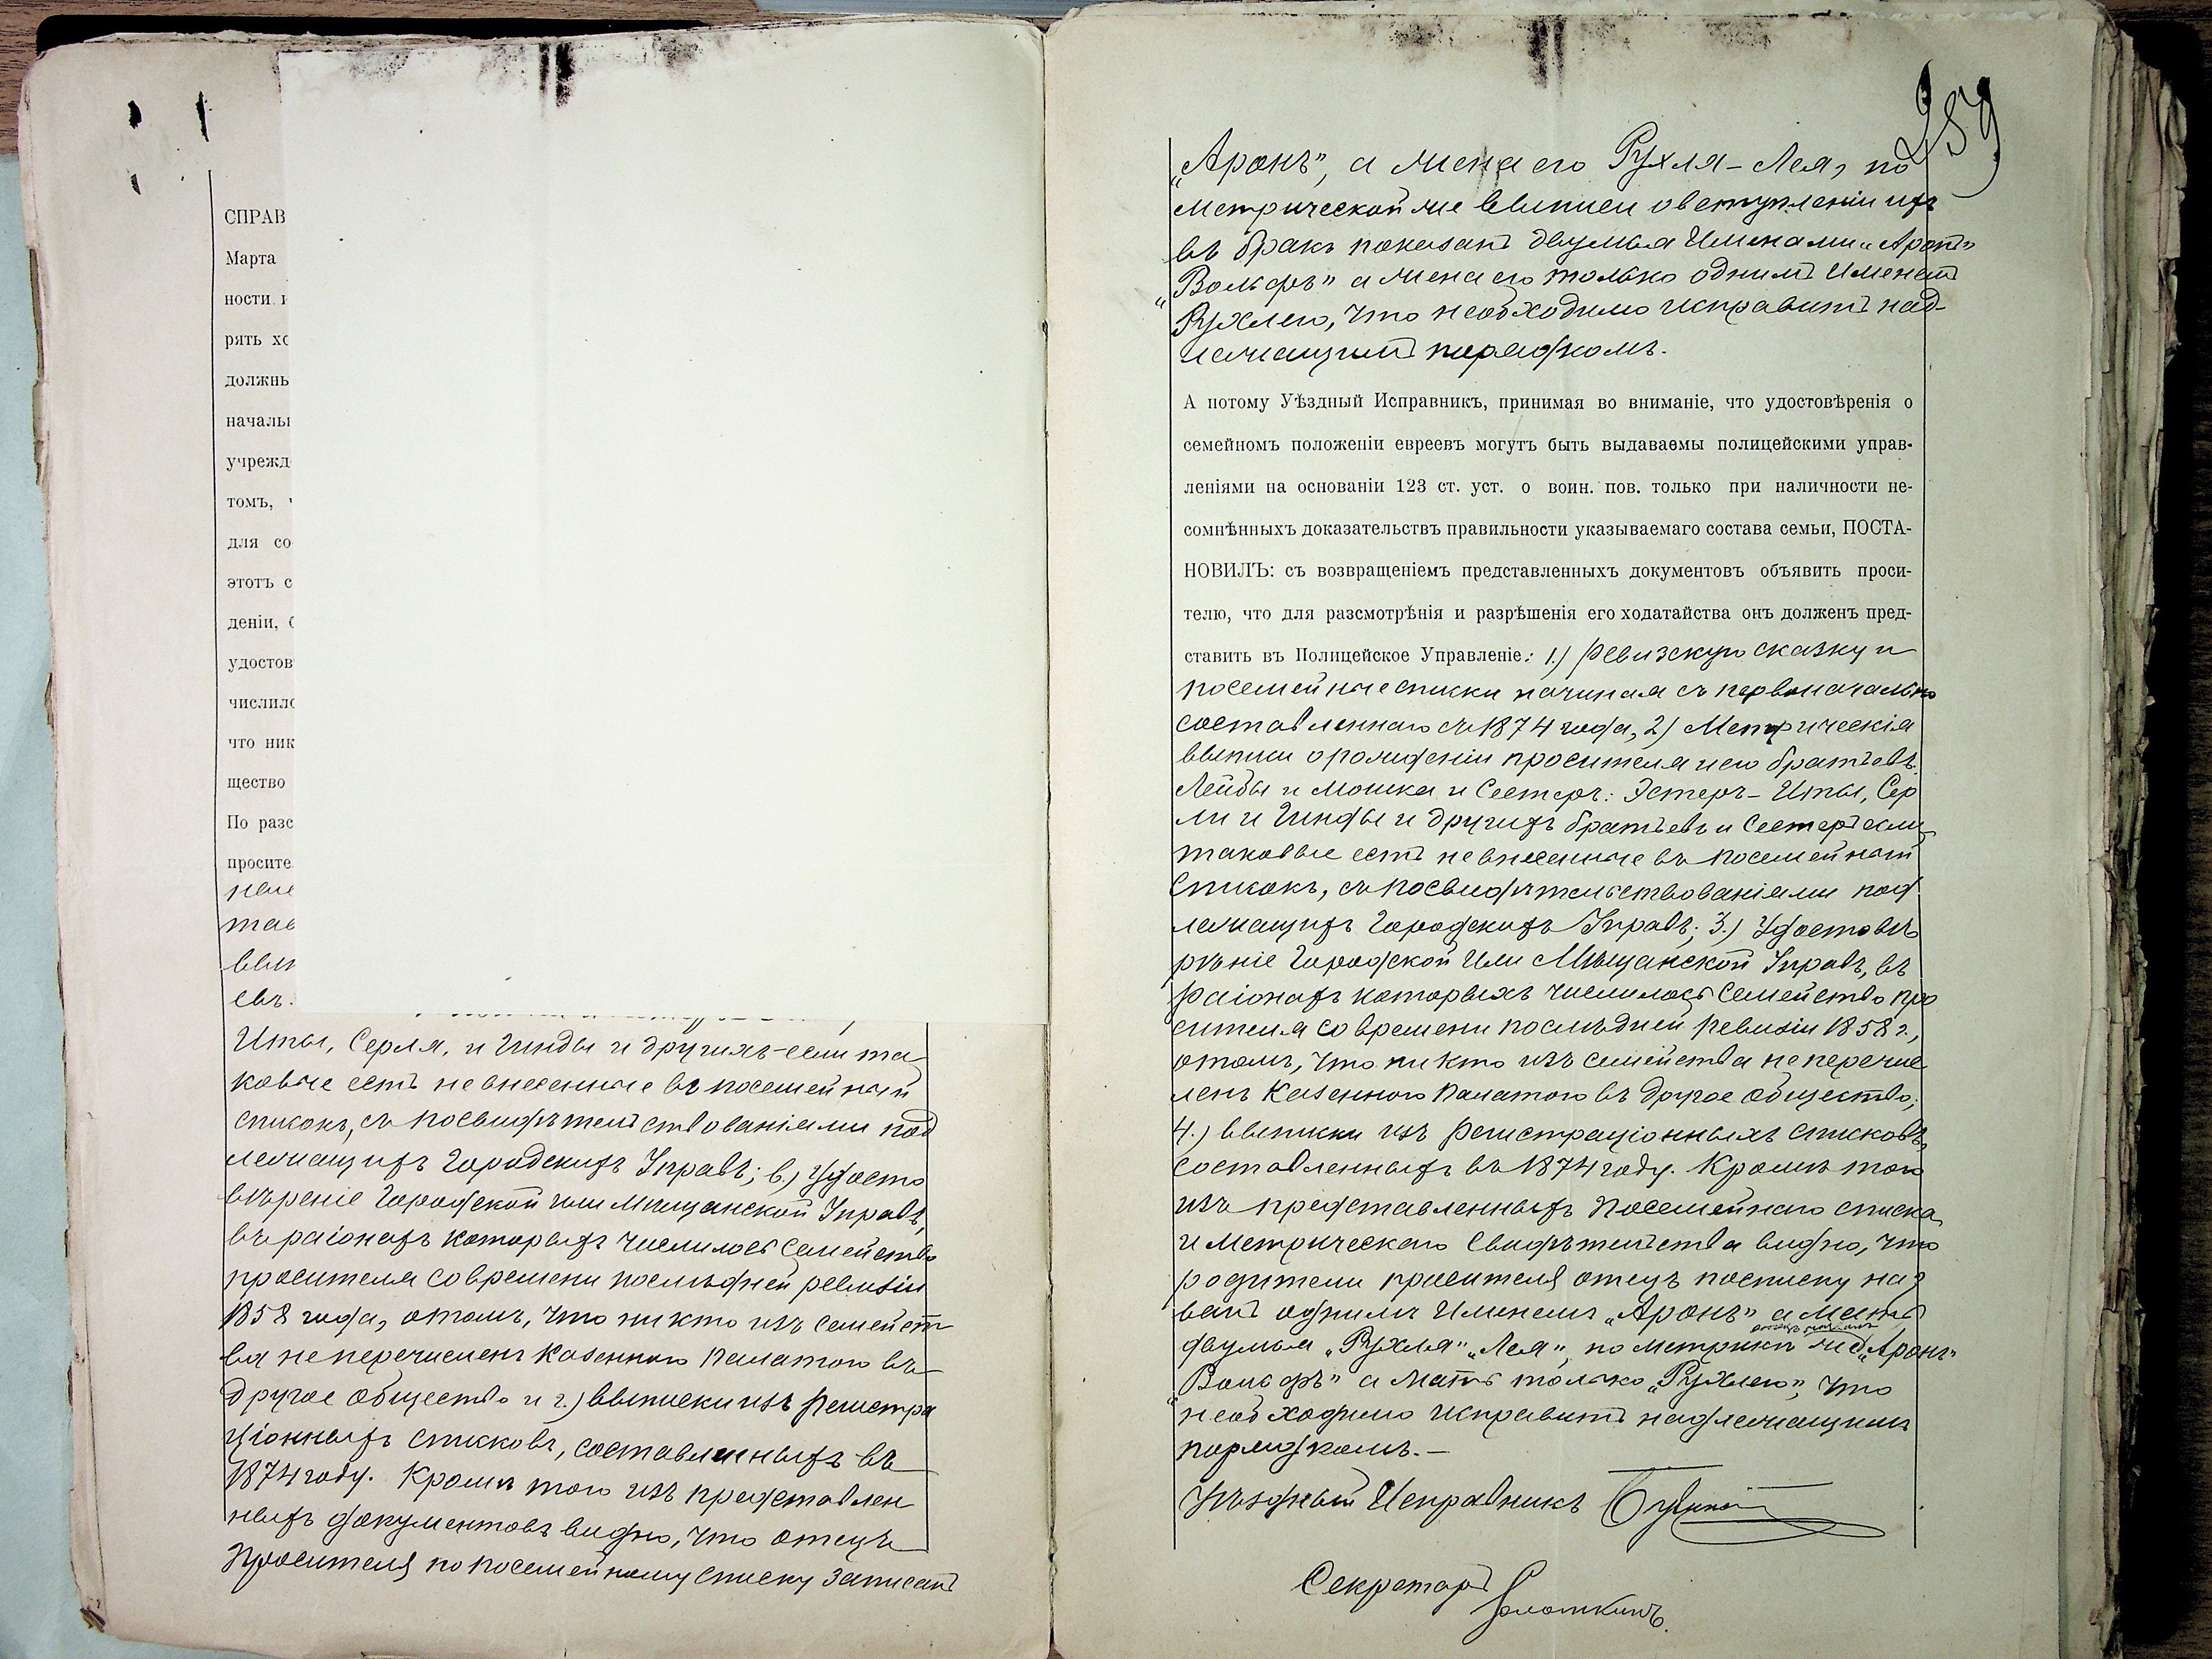 СПРАВ
Марта
ности и
рять хо
должны
началы
учрежд
томъ, ч
для со
этотъ с
деніи, б
удостов
числило
что ник
щество
По разс
просите
таб
вып
евъ.
Иты, Серля, и Гинды и другихъ если та
ковые есть не внесенные въ посемейный
списокъ, съ посвидѣтельствованіями над
лежащихъ Городскихъ Управъ; в.) Удосто
вѣреніе Городской или Мѣщанской Управъ,
въ раіонахъ которыхъ числилось семейство
просителя со времени послѣдней ревизіи
1858 года, о томъ, что никто изъ семейст
ва не перечисленъ Казенною Палатою въ
другое общество и г.) выписки изъ регистра
ціонныхъ списковъ, составленныхъ въ
1874 году. Кромѣ того изъ представлен
ныхъ документовъ видно, что отецъ
просителя по посемейному списку записанъ
259
„Аронъ", а жена его Рухля-Лея, по
метрической же выписи о вступленіи ихъ
въ бракъ показанъ двумя именами „Аронъ"
„Вольфъ" а жена его только однимъ именемъ
Рухлею, что необходимо исправить над-
лежащимъ порядкомъ.
А потому Уѣздный Исправникъ, принимая во вниманіе, что удостовѣренія о
семейномъ положеніи евреевъ могутъ быть выдаваемы полицейскими управ-
леніями на основаніи 123 ст. уст. о воин. пов. только при наличности не-
сомнѣнныхъ доказательствъ правильности указываемаго состава семьи, ПОСТА-
НОВИЛЪ: съ возвращеніемъ представленныхъ документовъ объявить проси-
телю, что для разсмотрѣнія и разрѣшенія его ходатайства онъ долженъ пред-
ставить въ Полицейское Управленіе: 1.) ревизскую сказку и
посемейные списки начиная съ первоначально
составленнаго съ 1874 года, 2) Метрическія
выписи о рожденіи просителя и его братьевъ
Лейбы и Мошка и Сестеръ: Эстеръ-Иты, Сер
ли и Гинды и другихъ братьевъ и Сестеръ если
таковые есть не внесенные въ посемейный
списокъ, съ посвидѣтельствованіями над
лежащихъ Городскихъ Управъ; 3.) Удостовѣ
реніе Городской или Мѣщанской Управъ, въ
раіонахъ которыхъ числилось семейство про
сителя со времени послѣдней ревизіи 1858 г.,
о томъ, что никто изъ семейства не перечис
ленъ Казенною Палатою въ другое общество;
4.) выписки изъ регистраціонныхъ списковъ,
составленныхъ въ 1874 году. Кромѣ того
изъ представленныхъ посемейнаго списка
и метрическаго свидѣтельства видно, что
родители просителя отецъ по списку наз
ванъ однимъ именемъ „Аронъ" а мать
двумя „Рухля" „Лея", по метрикѣ же „Аронъ"
„Вольфъ" а мать только „Рухлею", что
необходимо исправить надлежащимъ
порядкомъ.—
Уѣздный Исправникъ
Секретарь